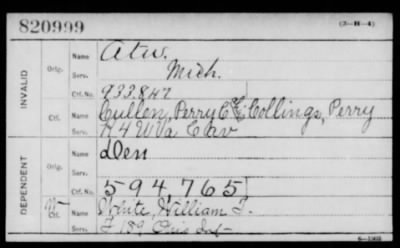 820999
(3-H-4)
INVALID
Orig. Name Atw.
Serv. Mich.
Ctf. No. 933.847
Ctf. Name Cullen, Perry C. Collings, Perry
Serv. H 4 W Va Cav
DEPENDENT
Orig. Name Den
Serv.
Ctf. No. 594,765
W Ctf. Name White, William T.
Serv. 189 Ohio Inf
6-1903